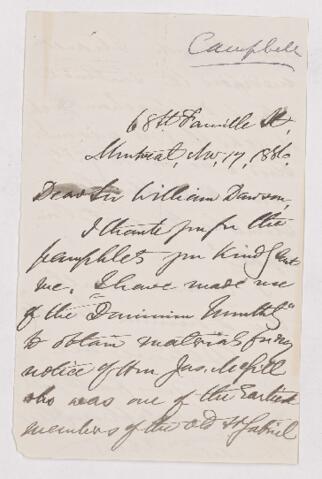 Campbell
68 St. Famille St,
Montreal, Nov. 17, 1886.
Dear Sir William Dawson,
I thank you for the
pamphlets you kindly sent
me. I have made use
of the "Dominion Monthly"
to obtain material for my
notice of Hon. Jas. McGill
who was one of the Earliest
members of the old St Gabriel